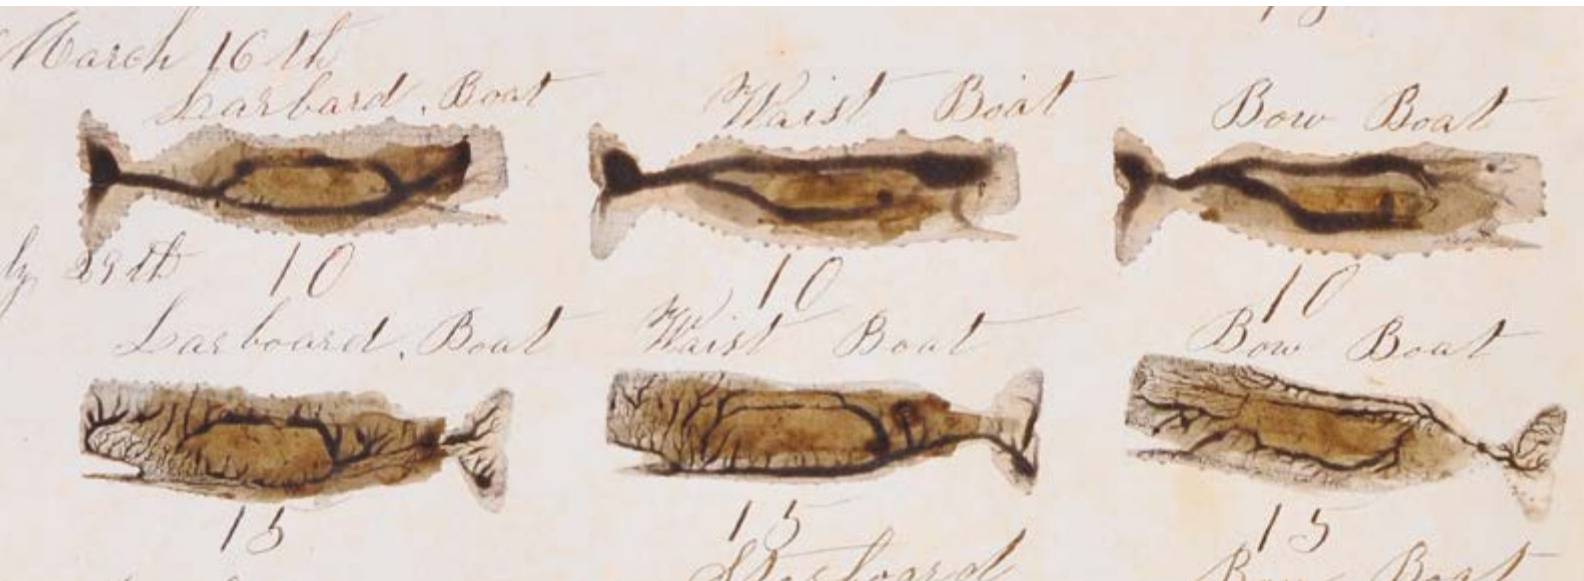 March 16th
Larbard. Boat Waist Boat Bow Boat
29th 10 10 10
Larboard. Boat Waist Boat Bow Boat
15 15 15
Starboard Bow Boat